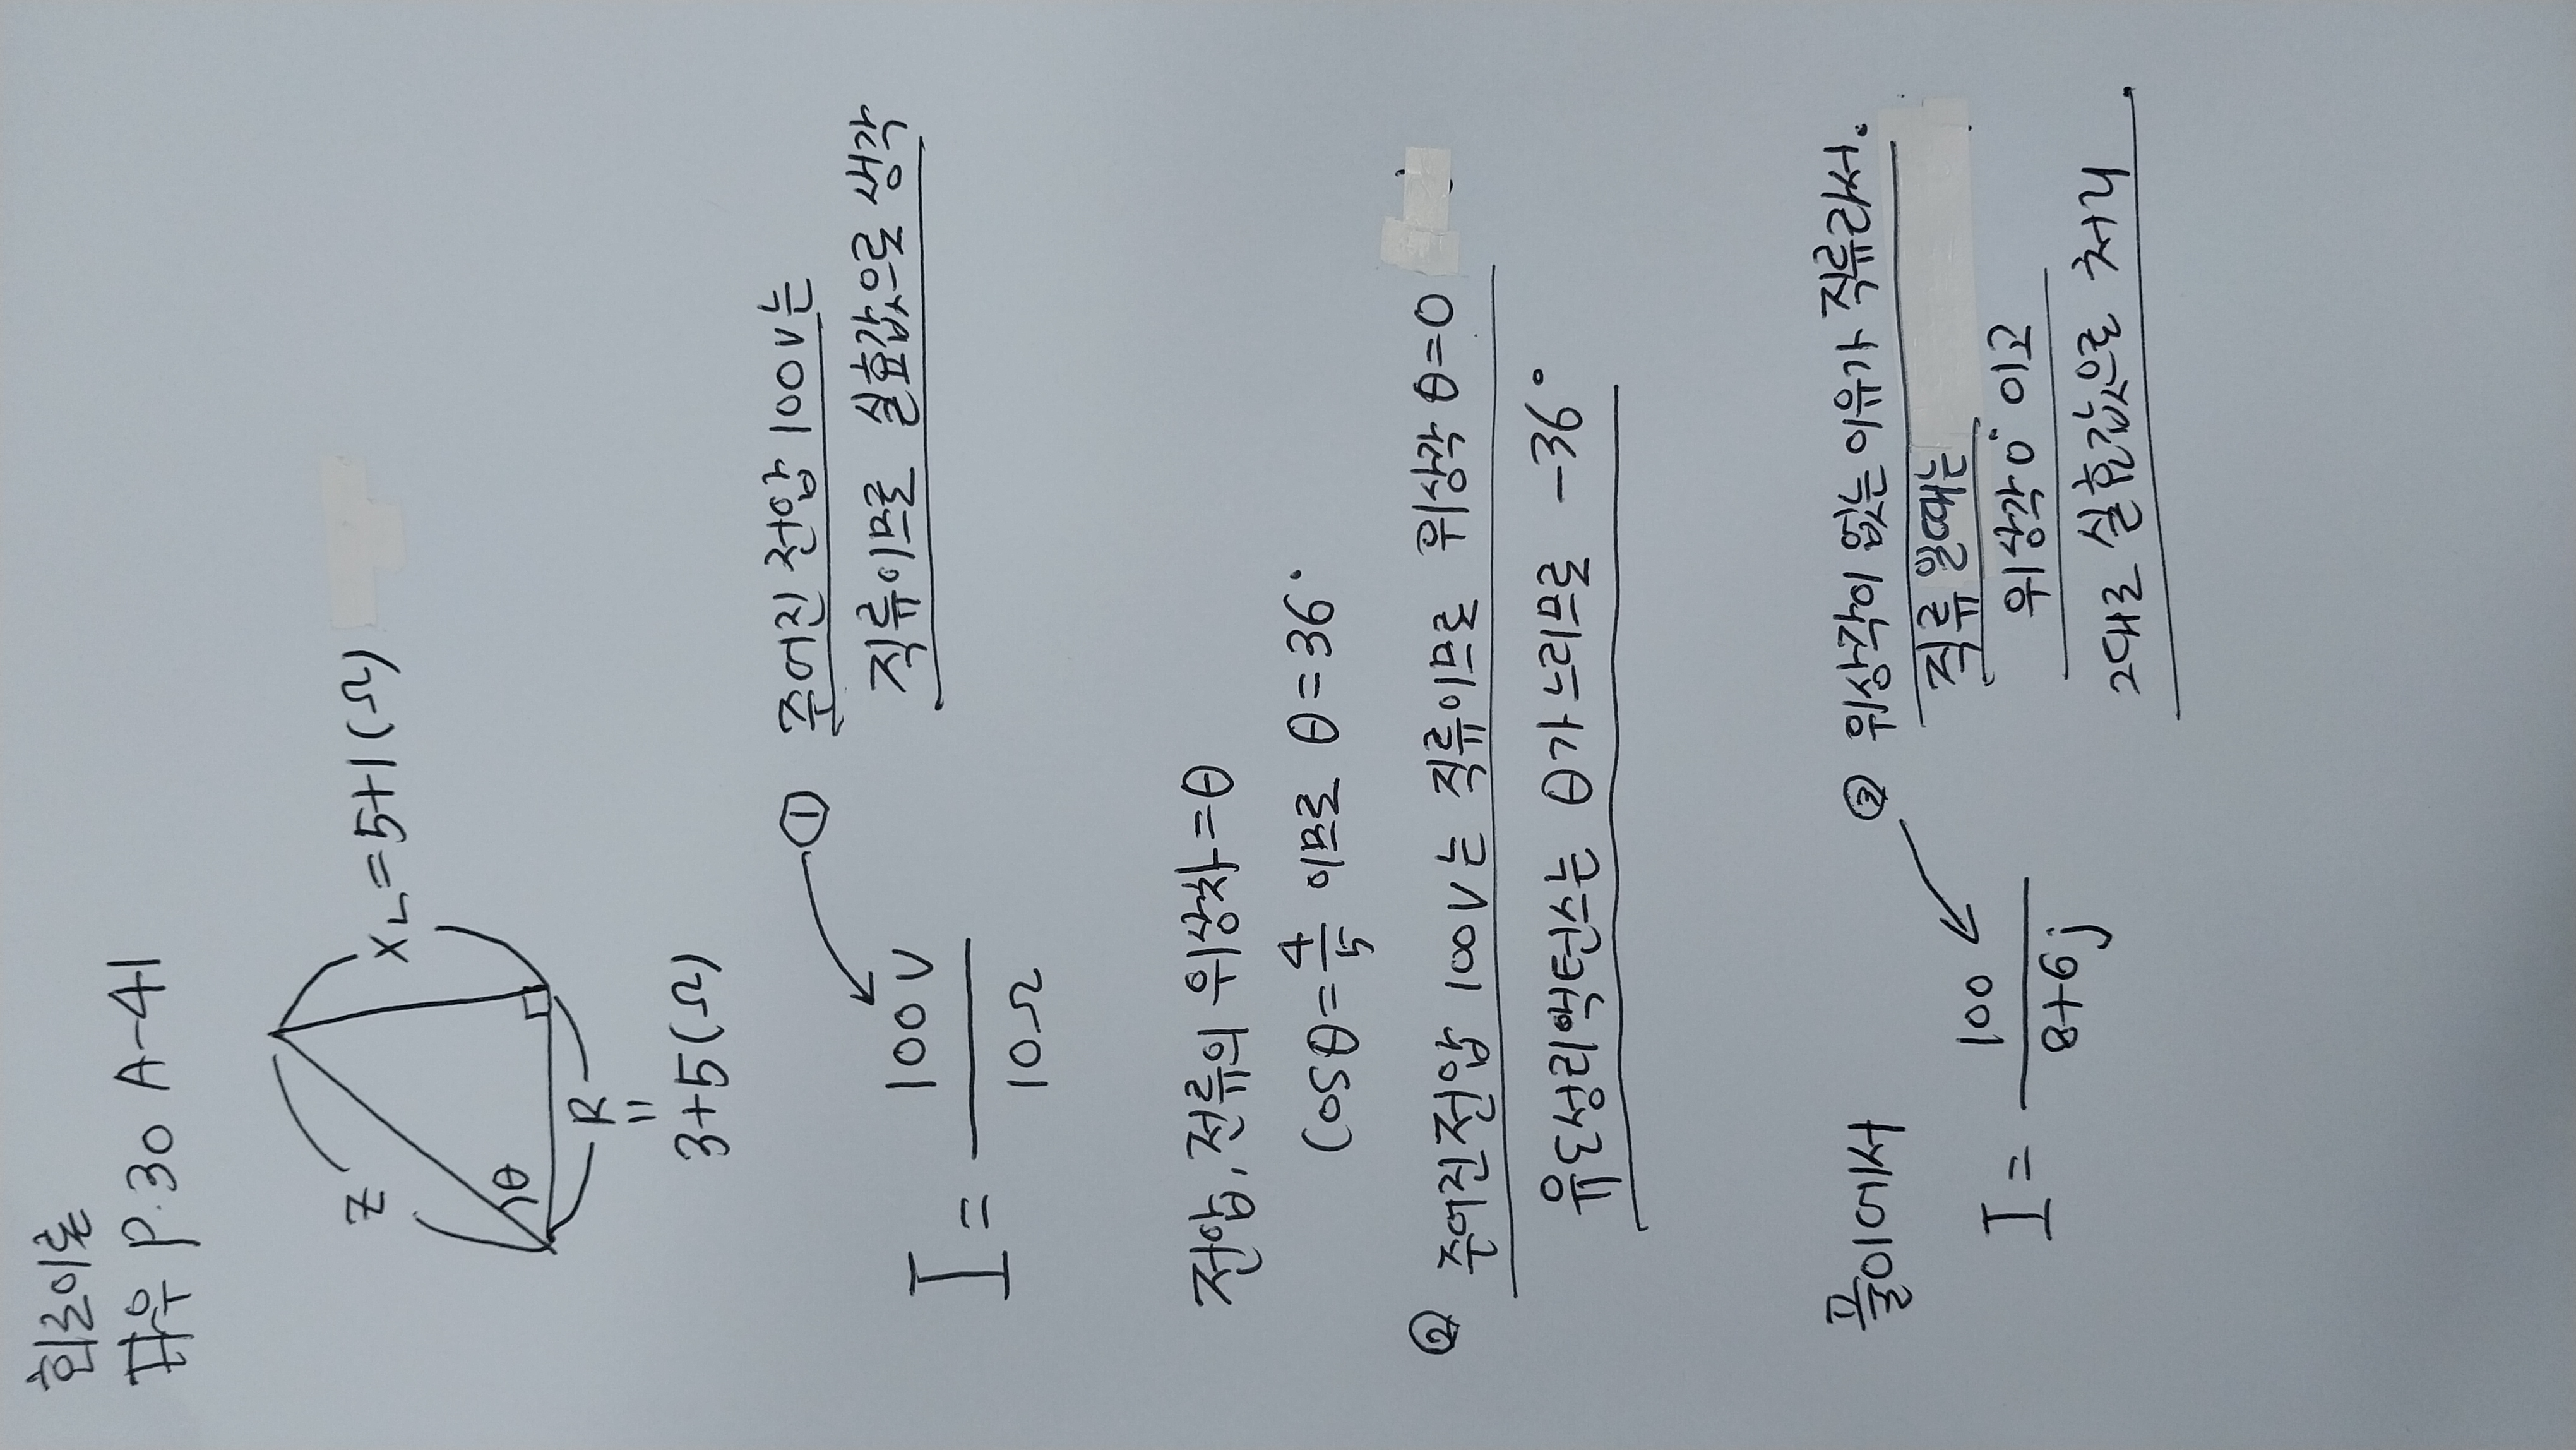 회로이론
파우 P.30 A-41
Z
XL=5+1(Ω)
θ
R
=
3+5(Ω)
I= 100V / 10Ω
① 주어진 전압 100V는
직류이므로 실효값으로 생각
전압, 전류의 위상차=θ
cosθ=4/5 이므로 θ=36°
② 주어진전압 100V는 직류이므로 위상각 θ=0
유도성리액턴스는 θ가 느리므로 -36°
풀이에서
I= 100 / 8+6j
③ 위상각이 없는 이유가 직류라서.
직류 일때는
위상각 0° 이고
그대로 실효값으로 처리.